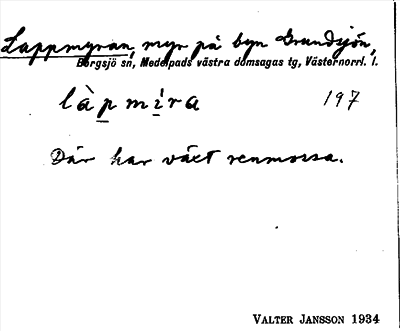 Lappmyran, myr på byn Grundsjön,
Borgsjö sn, Medelpads västra domsagas tg, Västernorrl. l.
làpmira 197
Där har växt renmossa.
VALTER JANSSON 1934